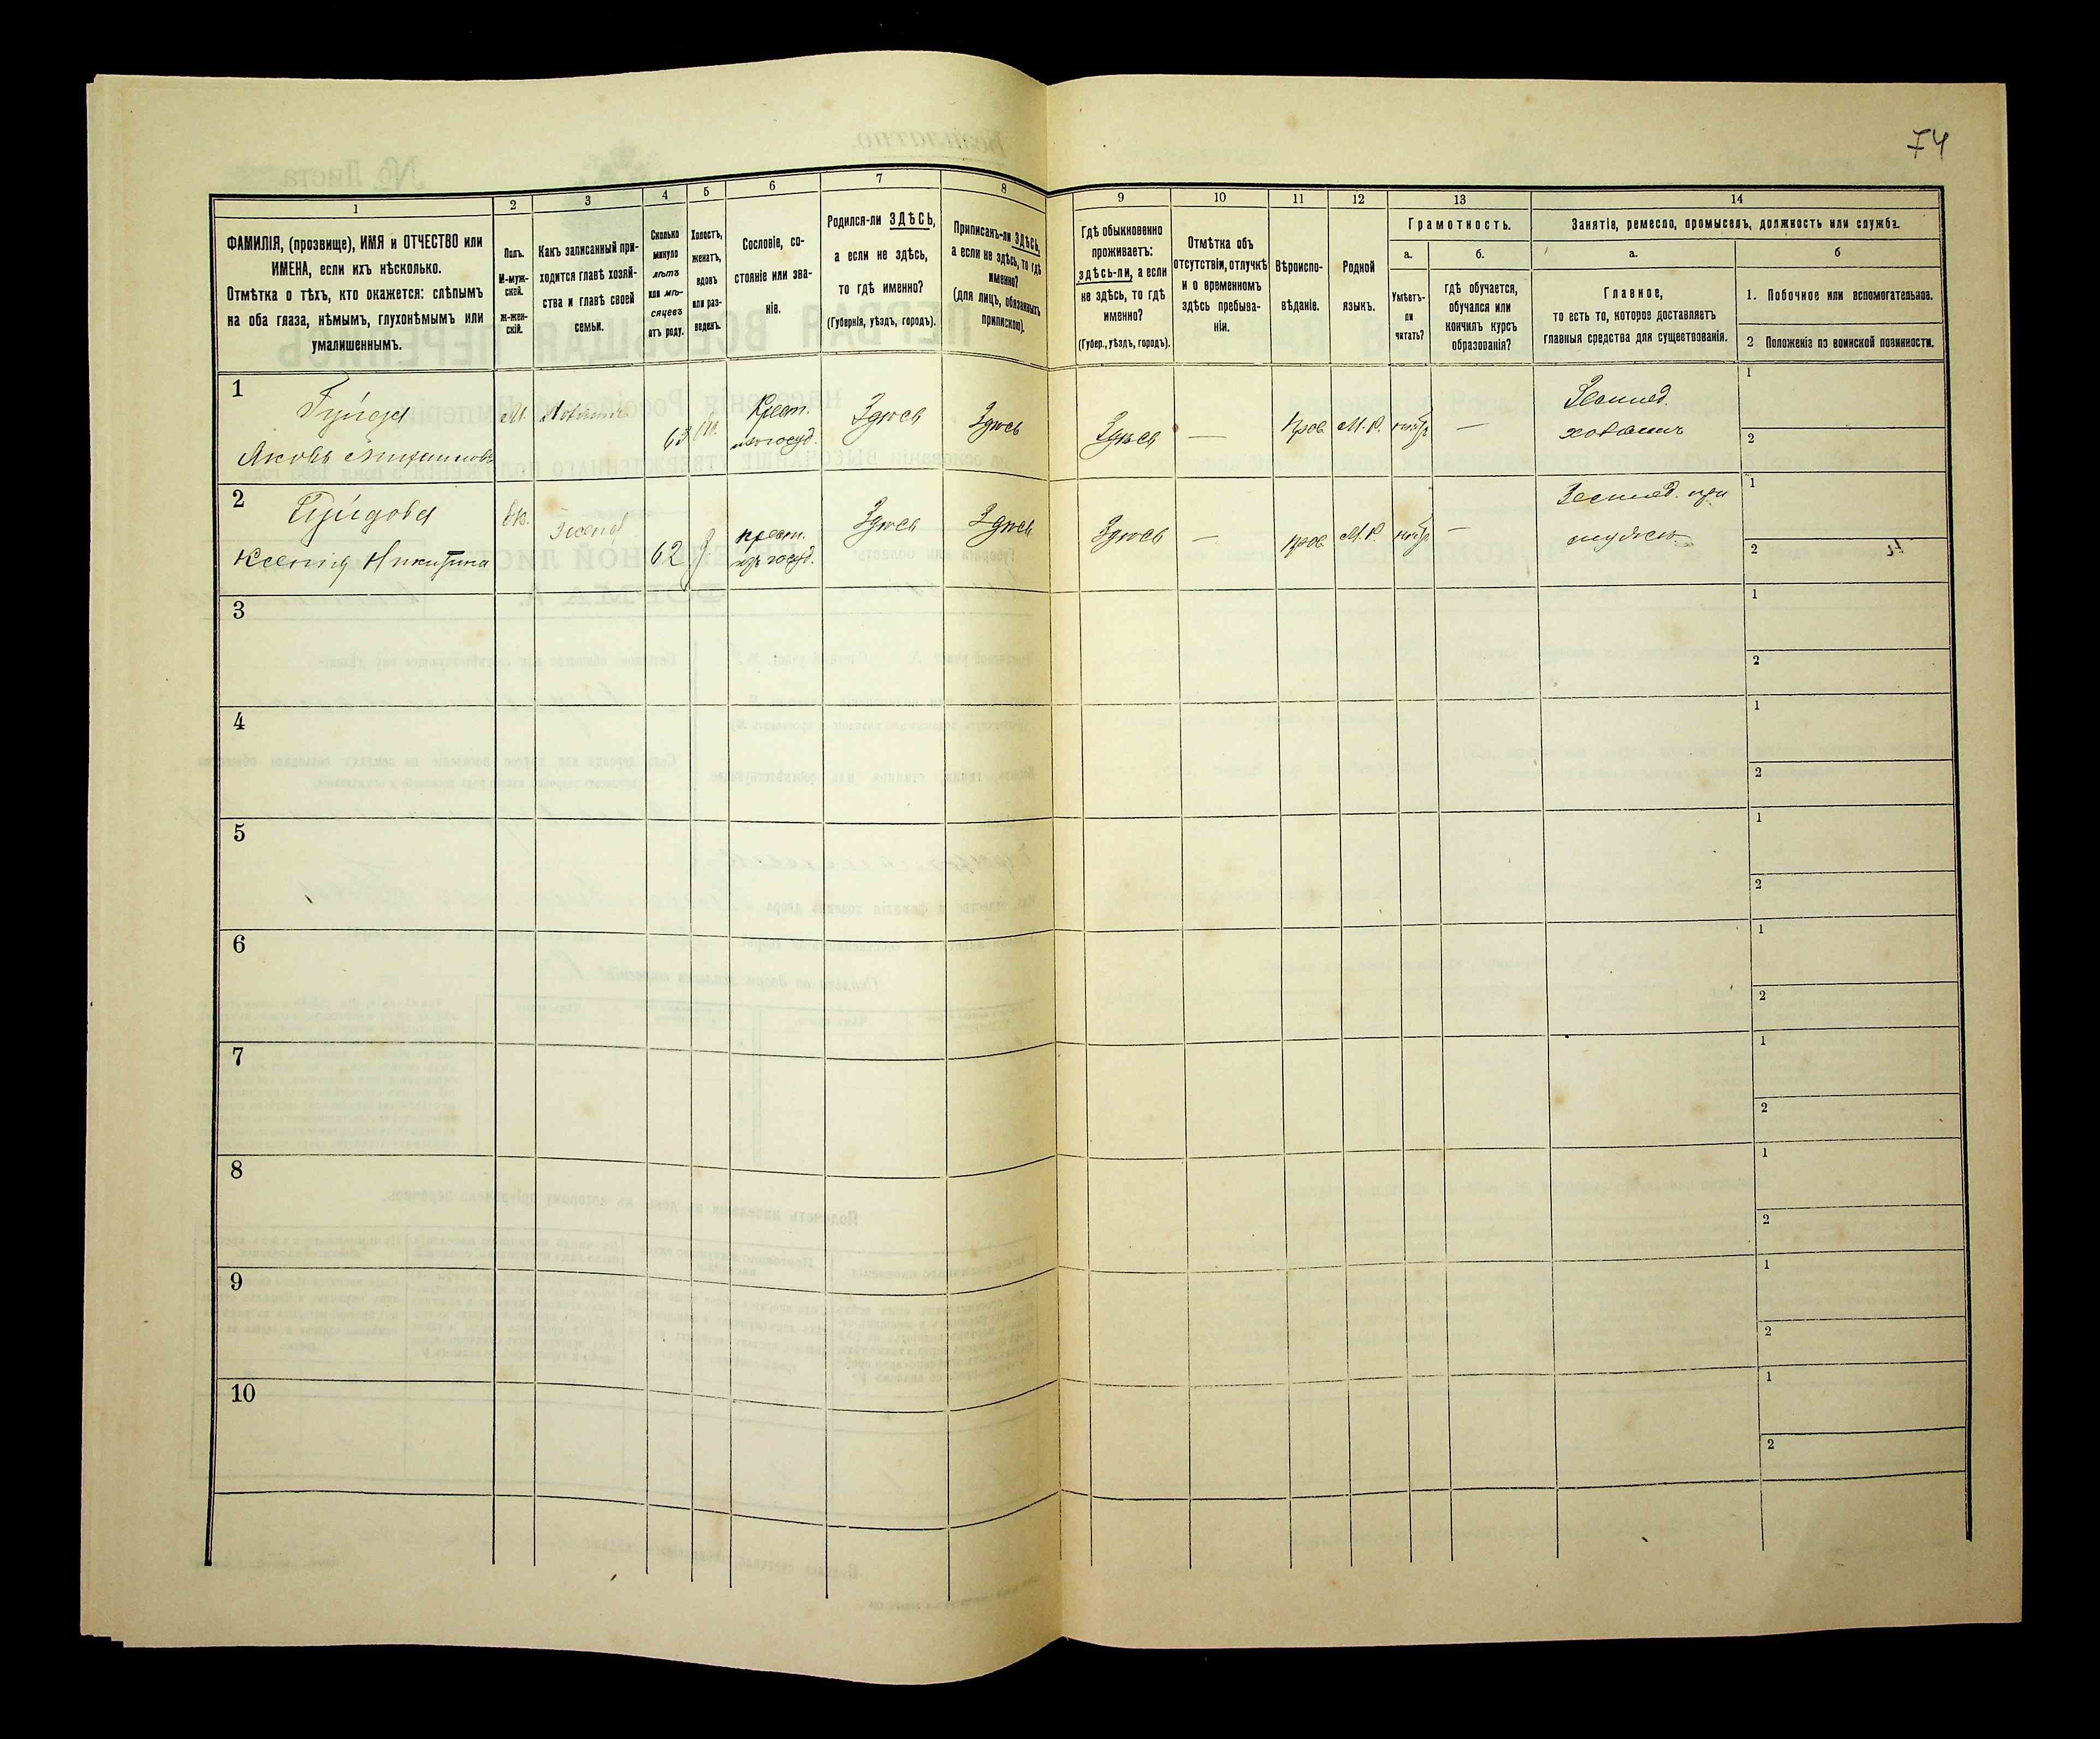 74
1
2
3
4
5
6
7
8
9
10
11
12
13
14
ФАМИЛІЯ, (прозвище), ИМЯ и ОТЧЕСТВО или
ИМЕНА, если ихъ нѣсколько.
Отмѣтка о тѣхъ, кто окажется: слѣпымъ
на оба глаза, нѣмымъ, глухонѣмымъ или
умалишеннымъ.
Полъ.
М-муж-
ской.
Ж-жен-
скій.
Какъ записанный при-
ходится главѣ хозяй-
ства и главѣ своей
семьи.
Сколько
минуло
лѣтъ
или мѣ-
сяцевъ
отъ роду.
Холостъ,
женатъ,
вдовъ
или раз-
веденъ.
Сословіе, со-
стояніе или зва-
ніе.
Родился-ли ЗДѢСЬ,
а если не здѣсь,
то гдѣ именно?
(Губернія, уѣздъ, городъ).
Приписанъ-ли ЗДѢСЬ,
а если не здѣсь, то гдѣ
именно?
(для лицъ, обязанныхъ
припискою).
Гдѣ обыкновенно
проживаетъ:
здѣсь-ли, а если
не здѣсь, то гдѣ
именно?
(Губер., уѣздъ, городъ).
Отмѣтка объ
отсутствіи, отлучкѣ
и о временномъ
здѣсь пребыва-
ніи.
Вѣроиспо-
вѣданіе.
Родной
языкъ.
Грамотность.
а.
Умѣетъ-
ли
читать?
б.
гдѣ обучается,
обучался или
кончилъ курсъ
образованія?
Занятіе, ремесло, промыселъ, должность или служба.
а.
Главное,
то есть то, которое доставляетъ
главныя средства для существованія.
б
1. Побочное или вспомогательное.
2 Положеніе по воинской повинности.
1
Яковъ
М.
63
Крест.
Здѣсь
Здѣсь
Здѣсь
—
прав.
М.Р.
—
Землед.
хозяинъ
1
2
2
Ксения Никитина
жена
62
крест.
изъ госуд.
Здѣсь
Здѣсь
Здѣсь
—
прав.
М.Р.
—
Землед. при
мужѣ
1
2
3
1
2
4
1
2
5
1
2
6
1
2
7
1
2
8
1
2
9
1
2
10
1
2